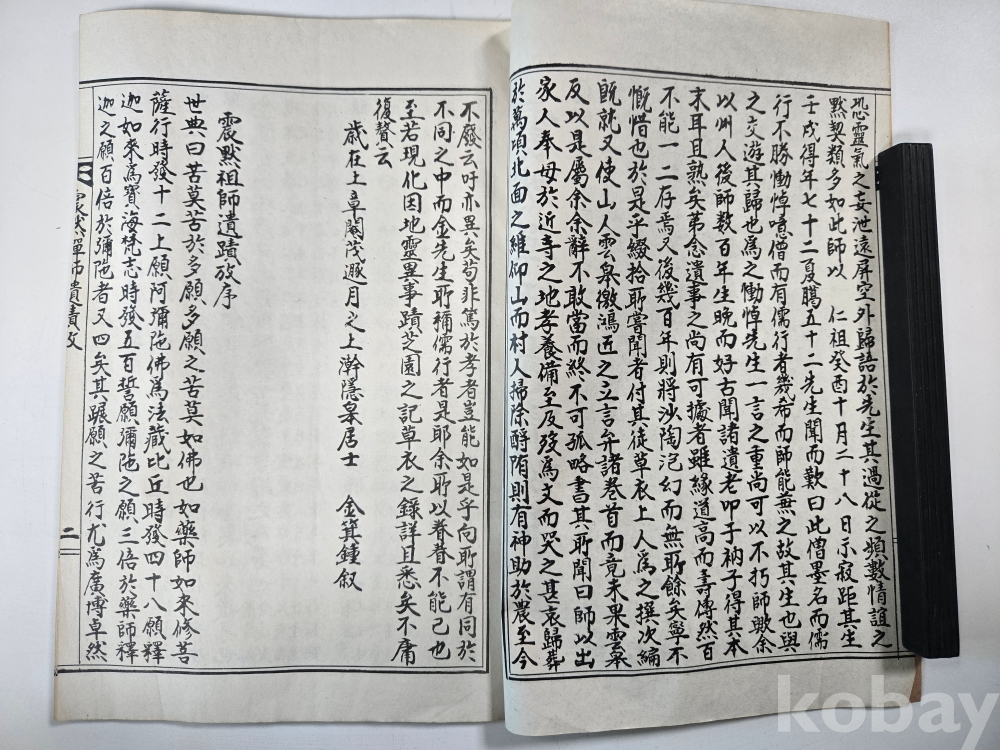 恐靈氣之妄泄遠屏空外歸語於先生其過從之頻數情誼之
默契類多如此師以 仁祖癸酉十月二十八日示寂距其生
壬戌得年七十二夏臘五十二先生聞而歎曰此僧墨名而儒
行不勝慟悼噫僧而有儒行者幾希而師能無之故其生也與
之交游其歸也爲之慟悼先生一言之重尚可以不朽師歟余
以州人後師數百年生晚而好古聞諸遺老叩子衲子得其本
末耳且熟矣第念遺事之尚有可據者雖緣道高而壽傳然百
不能一二存焉又後幾百年則將沙陶泡幻而無聊餘矣寧不
慨惜也於是乎綴拾聊嘗聞者付其徒草衣上人爲之撰次編
旣就又使山人雲皋徵鴻近之立言弁諸卷首而竟未果雲皋
反以是屬余余辭不敢當而終不可孤略書其所聞曰師以出
家人奉母於近寺之地孝養備至及歿爲文而哭之甚哀歸葬
於萬頃北面之維仰山而村人掃除酹隋則有神助於農至今
不廢云吁亦異矣苟非篤於孝者豈能如是乎向所謂有同於
不同之中而金先生所稱儒行者是耶余所以眷眷不能已也
至若現化因地靈異事蹟芝園之記草衣之錄詳且悉矣不庸
復贅云
歲在上章閹茂遯月之上澣隱皋居士 金箕鍾敘
震默祖師遺蹟攷序
世典曰苦莫苦於多願多願之苦莫如佛也如藥師如來修菩
薩行時發十二上願阿彌陁佛爲法藏比丘時發四十八願釋
迦如來爲寶海梵志時發五百誓願彌陁之願三倍於藥師釋
迦之願百倍於彌陁者又四矣其蹍願之苦行尤爲廣博卓然
震默禪師遺蹟攷
二
kobay